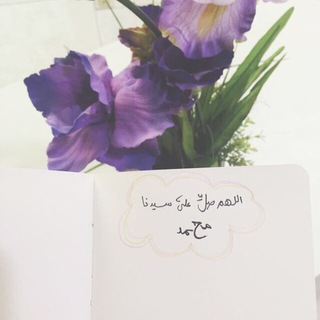 اللهم صلِّ على سيدنا
محمد